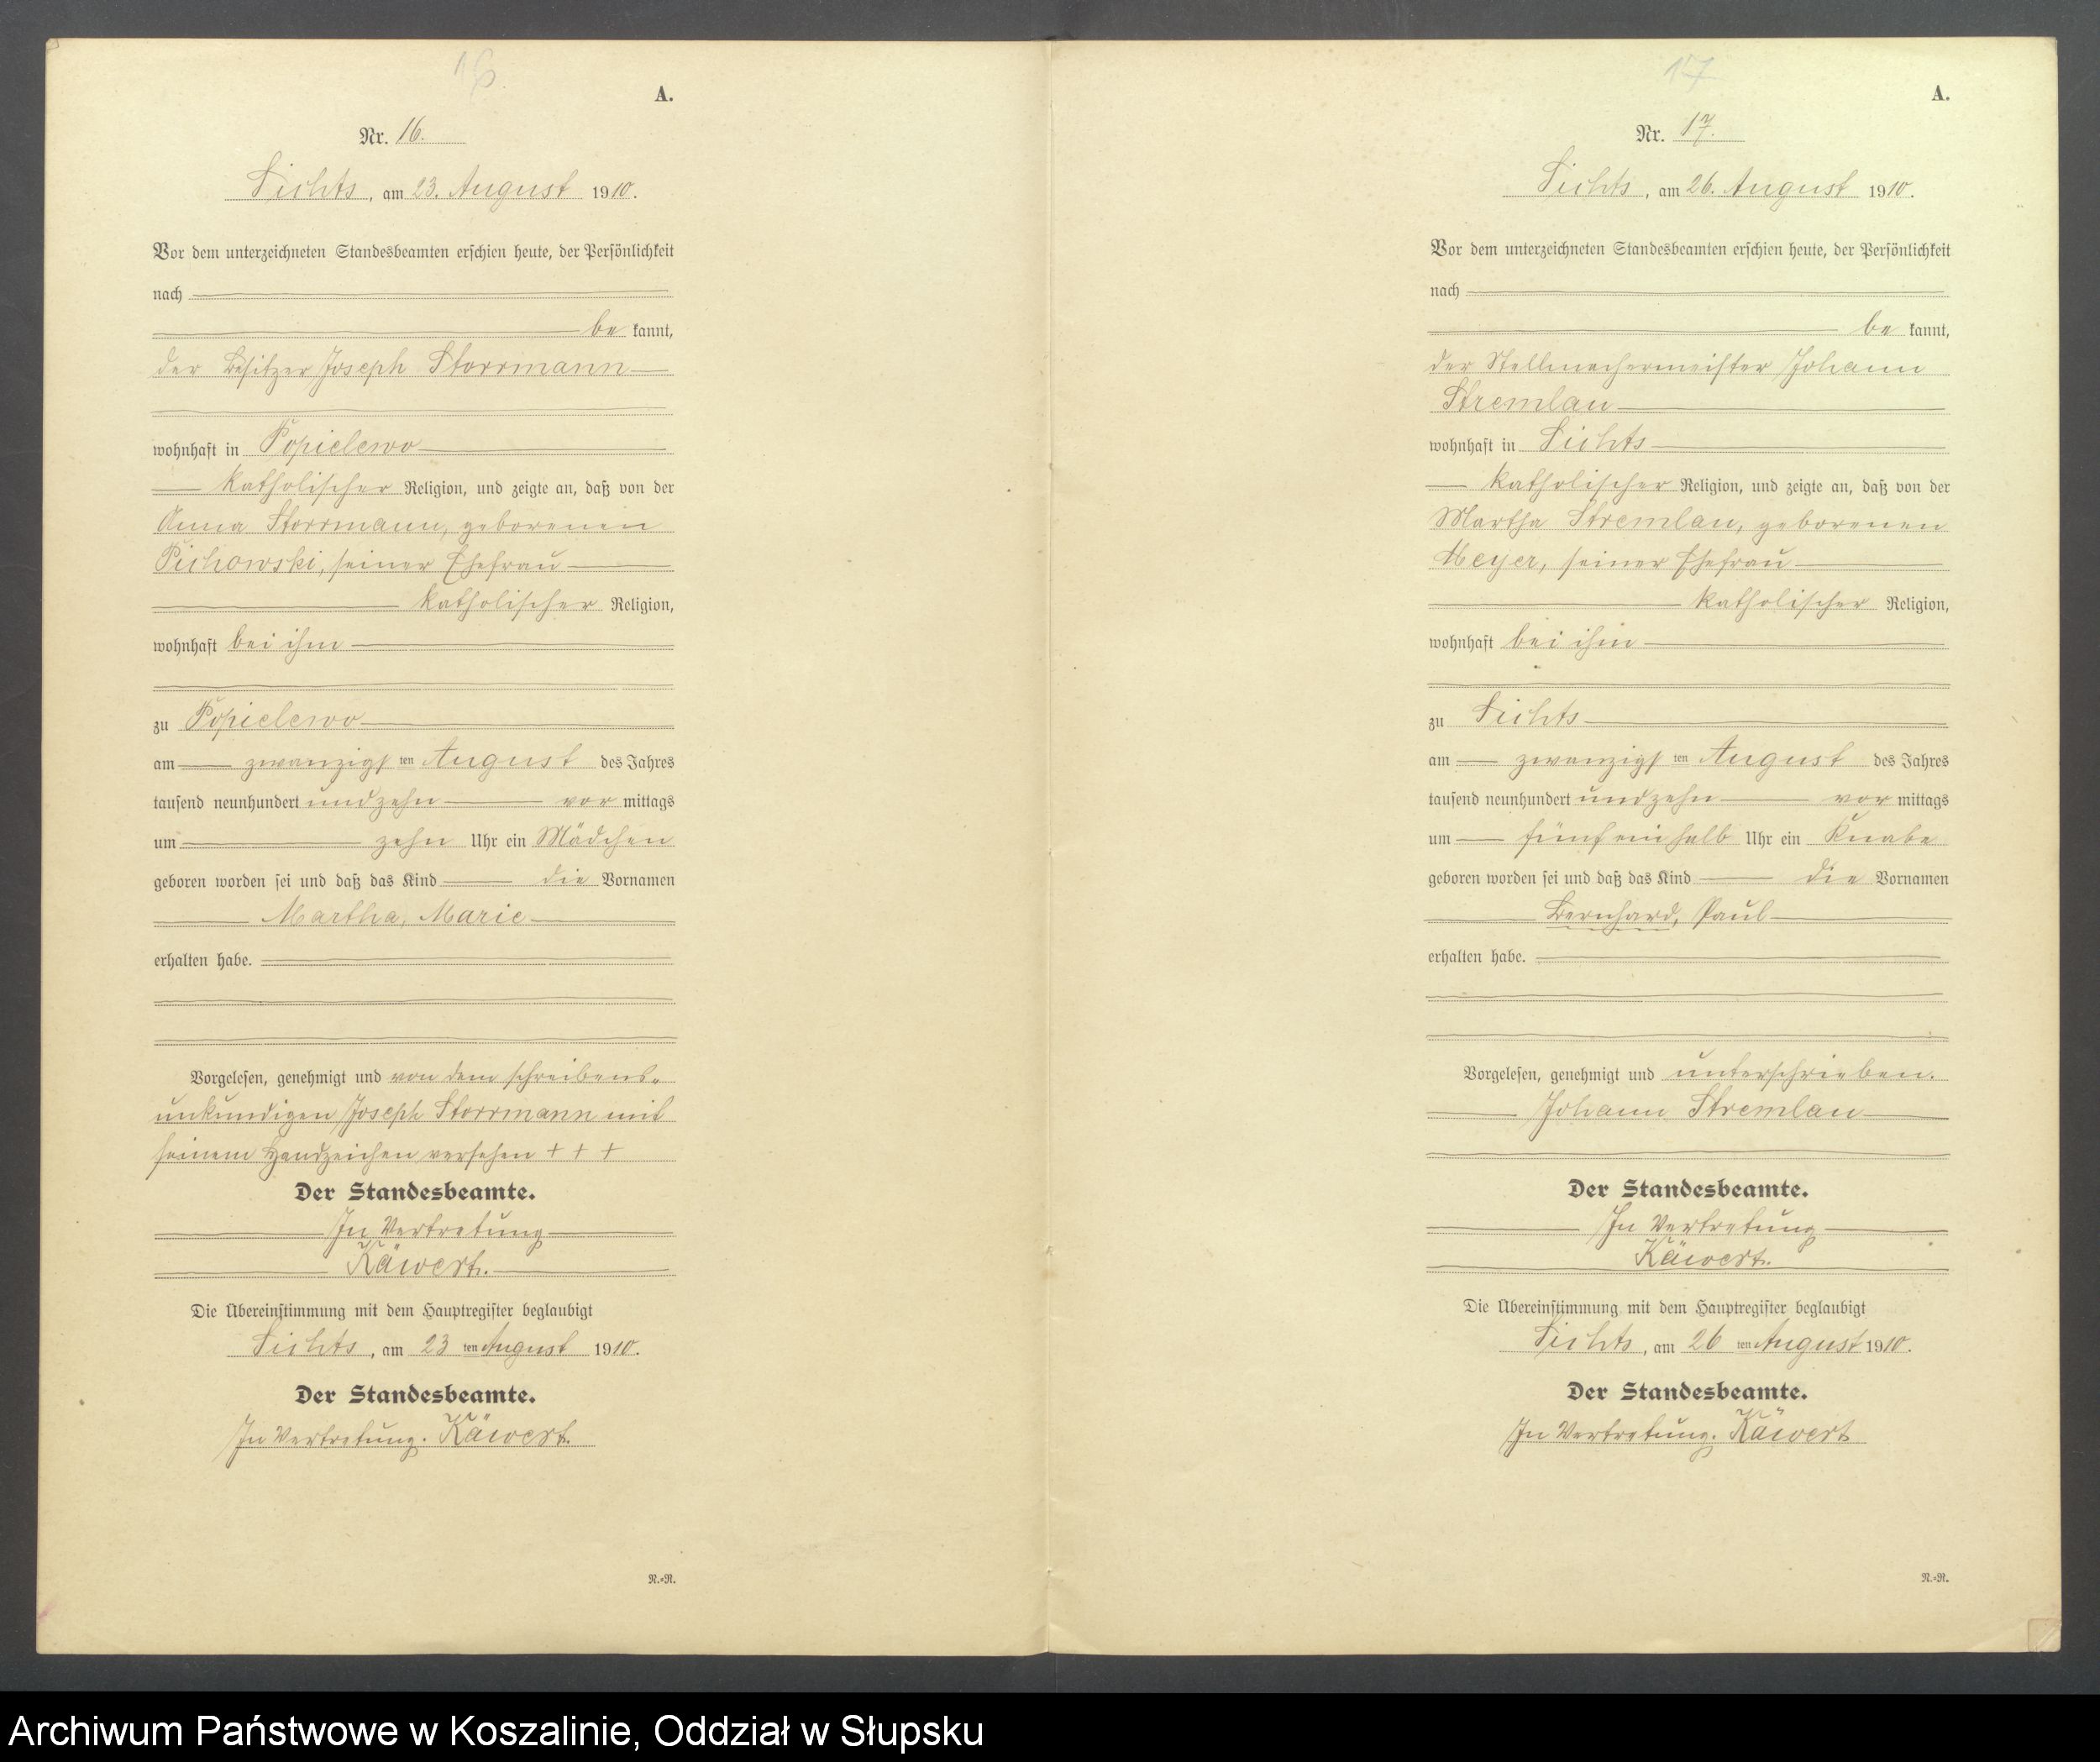 16.
A.
Nr. 16.
Lichts, am 23. August 1910.
Vor dem unterzeichneten Standesbeamten erschien heute, der Persönlichkeit
nach
be kannt,
der Besitzer Joseph Storrmann
wohnhaft in Popielewo
katholischer Religion, und zeigte an, daß von der
Anna Storrmann, geborenen
Pichowski, seiner Ehefrau
katholischer Religion,
wohnhaft bei ihm
zu Popielewo
am zwanzigsten August des Jahres
tausend neunhundert und zehn vor mittags
um zehn Uhr ein Mädchen
geboren worden sei und daß das Kind die Vornamen
Martha, Marie
erhalten habe.
Vorgelesen, genehmigt und von dem schreibens-
unkundigen Joseph Storrmann mit
seinem Handzeichen versehen + + +
Der Standesbeamte.
In Vertretung
Käwert.
Die Übereinstimmung mit dem Hauptregister beglaubigt
Lichts, am 23 ten August 1910.
Der Standesbeamte.
In Vertretung. Käwert.
R.=R.
17
A.
Nr. 17.
Lichts, am 26. August 1910.
Vor dem unterzeichneten Standesbeamten erschien heute, der Persönlichkeit
nach
be kannt,
der Stellmachermeister Johann
Stremlau
wohnhaft in Lichts
katholischer Religion, und zeigte an, daß von der
Martha Stremlau, geborenen
Meyer, seiner Ehefrau
katholischer Religion,
wohnhaft bei ihm
zu Lichts
am zwanzigsten August des Jahres
tausend neunhundert und zehn vor mittags
um fünf ein halb Uhr ein Knabe
geboren worden sei und daß das Kind die Vornamen
Bernhard, Paul
erhalten habe.
Vorgelesen, genehmigt und unterschrieben.
Johann Stremlau
Der Standesbeamte.
In Vertretung
Käwert.
Die Übereinstimmung mit dem Hauptregister beglaubigt
Lichts, am 26 ten August 1910.
Der Standesbeamte.
In Vertretung. Käwert
R.=R.
Archiwum Państwowe w Koszalinie, Oddział w Słupsku